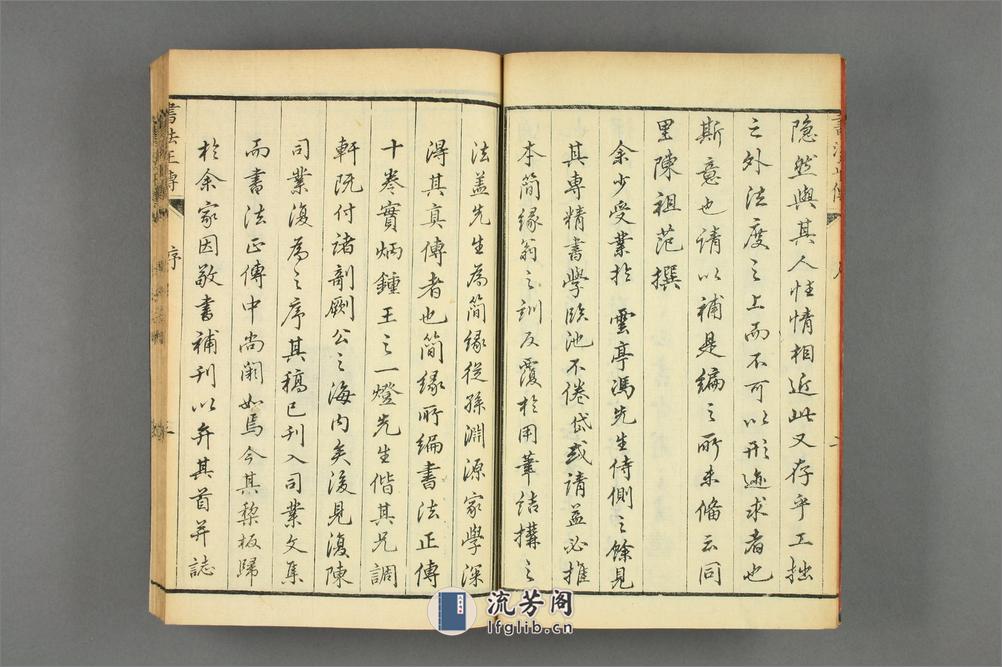 隱然與其人性情相近此又存乎工拙
之外法度之上而不可以形迹求者也
斯意也請以補是編之所未備云同
里陳祖范撰
余少受業於 雲亭馮先生侍側之餘見
其專精書學臨池不倦岱或請益必推
本簡緣翁之訓反覆於用筆結搆之
法蓋先生為簡緣從孫淵源家學深
得其真傳者也簡緣所編書法正傳
十卷實炳鍾王之一燈先生偕其兄調
軒既付諸剞劂公之海內矣後見復陳
司業復為之序其稿已刊入司業文集
而書法正傳中尚闕如焉今其棃板歸
於余家因敬書補刊以弁其首并誌
書法正傳
序
流芳阁
lfglib.cn